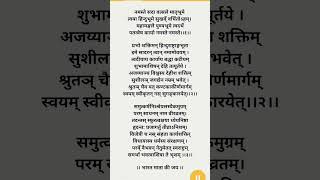 नमस्ते सदा वत्सले मातृभूमे
त्वया हिन्दुभूमे सुखवं वर्धितोऽहम्
महामङ्गले पुण्यभूमे त्वदर्थे
पतत्वेष कायो नमस्ते नमस्ते।।१।।
प्रभो शक्तिमन् हिन्दुराष्ट्राङ्गभूता
इमे सादरं त्वां नमामो वयम्
त्वदीयाय कार्याय बद्धा कटीयम्
शुभामाशिषं देहि तत्पूर्तये।
अजय्यां च विश्वस्य देहीश शक्तिं
सुशीलं जगद्येन नम्रं भवेत्
श्रुतं चैव यत् कण्टकाकीर्णमार्गम्
स्वयं स्वीकृतं नः सुगं कारयेत्।।२।।
समुत्कर्ष
परं साधनं नाम वीरव्रतम्
तदन्तः स्फुरत्वक्षया ध्येयनिष्ठा
हृदन्तः प्रजागर्तु तीव्राऽनिशम्
विजेत्री च नः संहता कार्यशक्तिर्
विधायास्य धर्मस्य संरक्षणम्
परं वैभवं नेतुमेतत् स्वराष्ट्रम्
समर्था भवत्वाशिषा ते भृशम्।।३।।
।। भारत माता की जय ।।